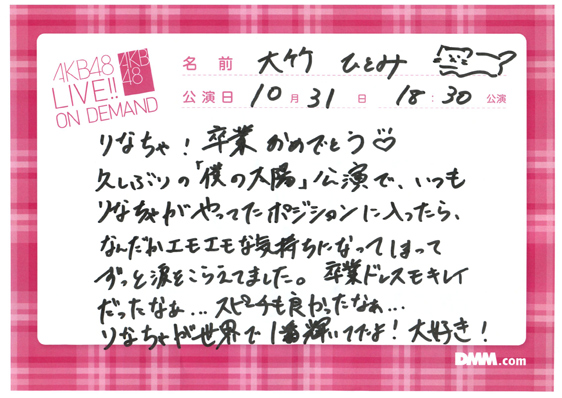 AKB48
LIVE!!
ON DEMAND
AKB
48
名前 大竹 ひとみ
公演日 10月31日 18:30 公演
りなちゃ!卒業おめでとう♡
久しぶりの「僕の太陽」公演で、いつも
りなちゃがやってたポジションに入ったら、
なんだかエモエモな気持ちになってしまって
ずっと涙をこらえてました。卒業ドレスもキレイ
だったなぁ…スピーチも良かったなぁ…
りなちゃが世界で1番輝いてたよ!大好き!
DMM.com